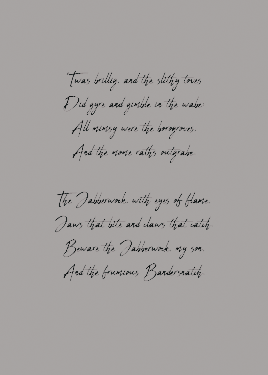 Twas brillig, and the slithy toves
Did gyre and gimble in the wabe:
All mimsy were the borogroves,
And the mome raths outgrabe.
The Jabberwock, with eyes of flame,
Jaws that bite and claws that catch.
Beware the Jabberwock, my son,
And the frumious Bandersnatch.